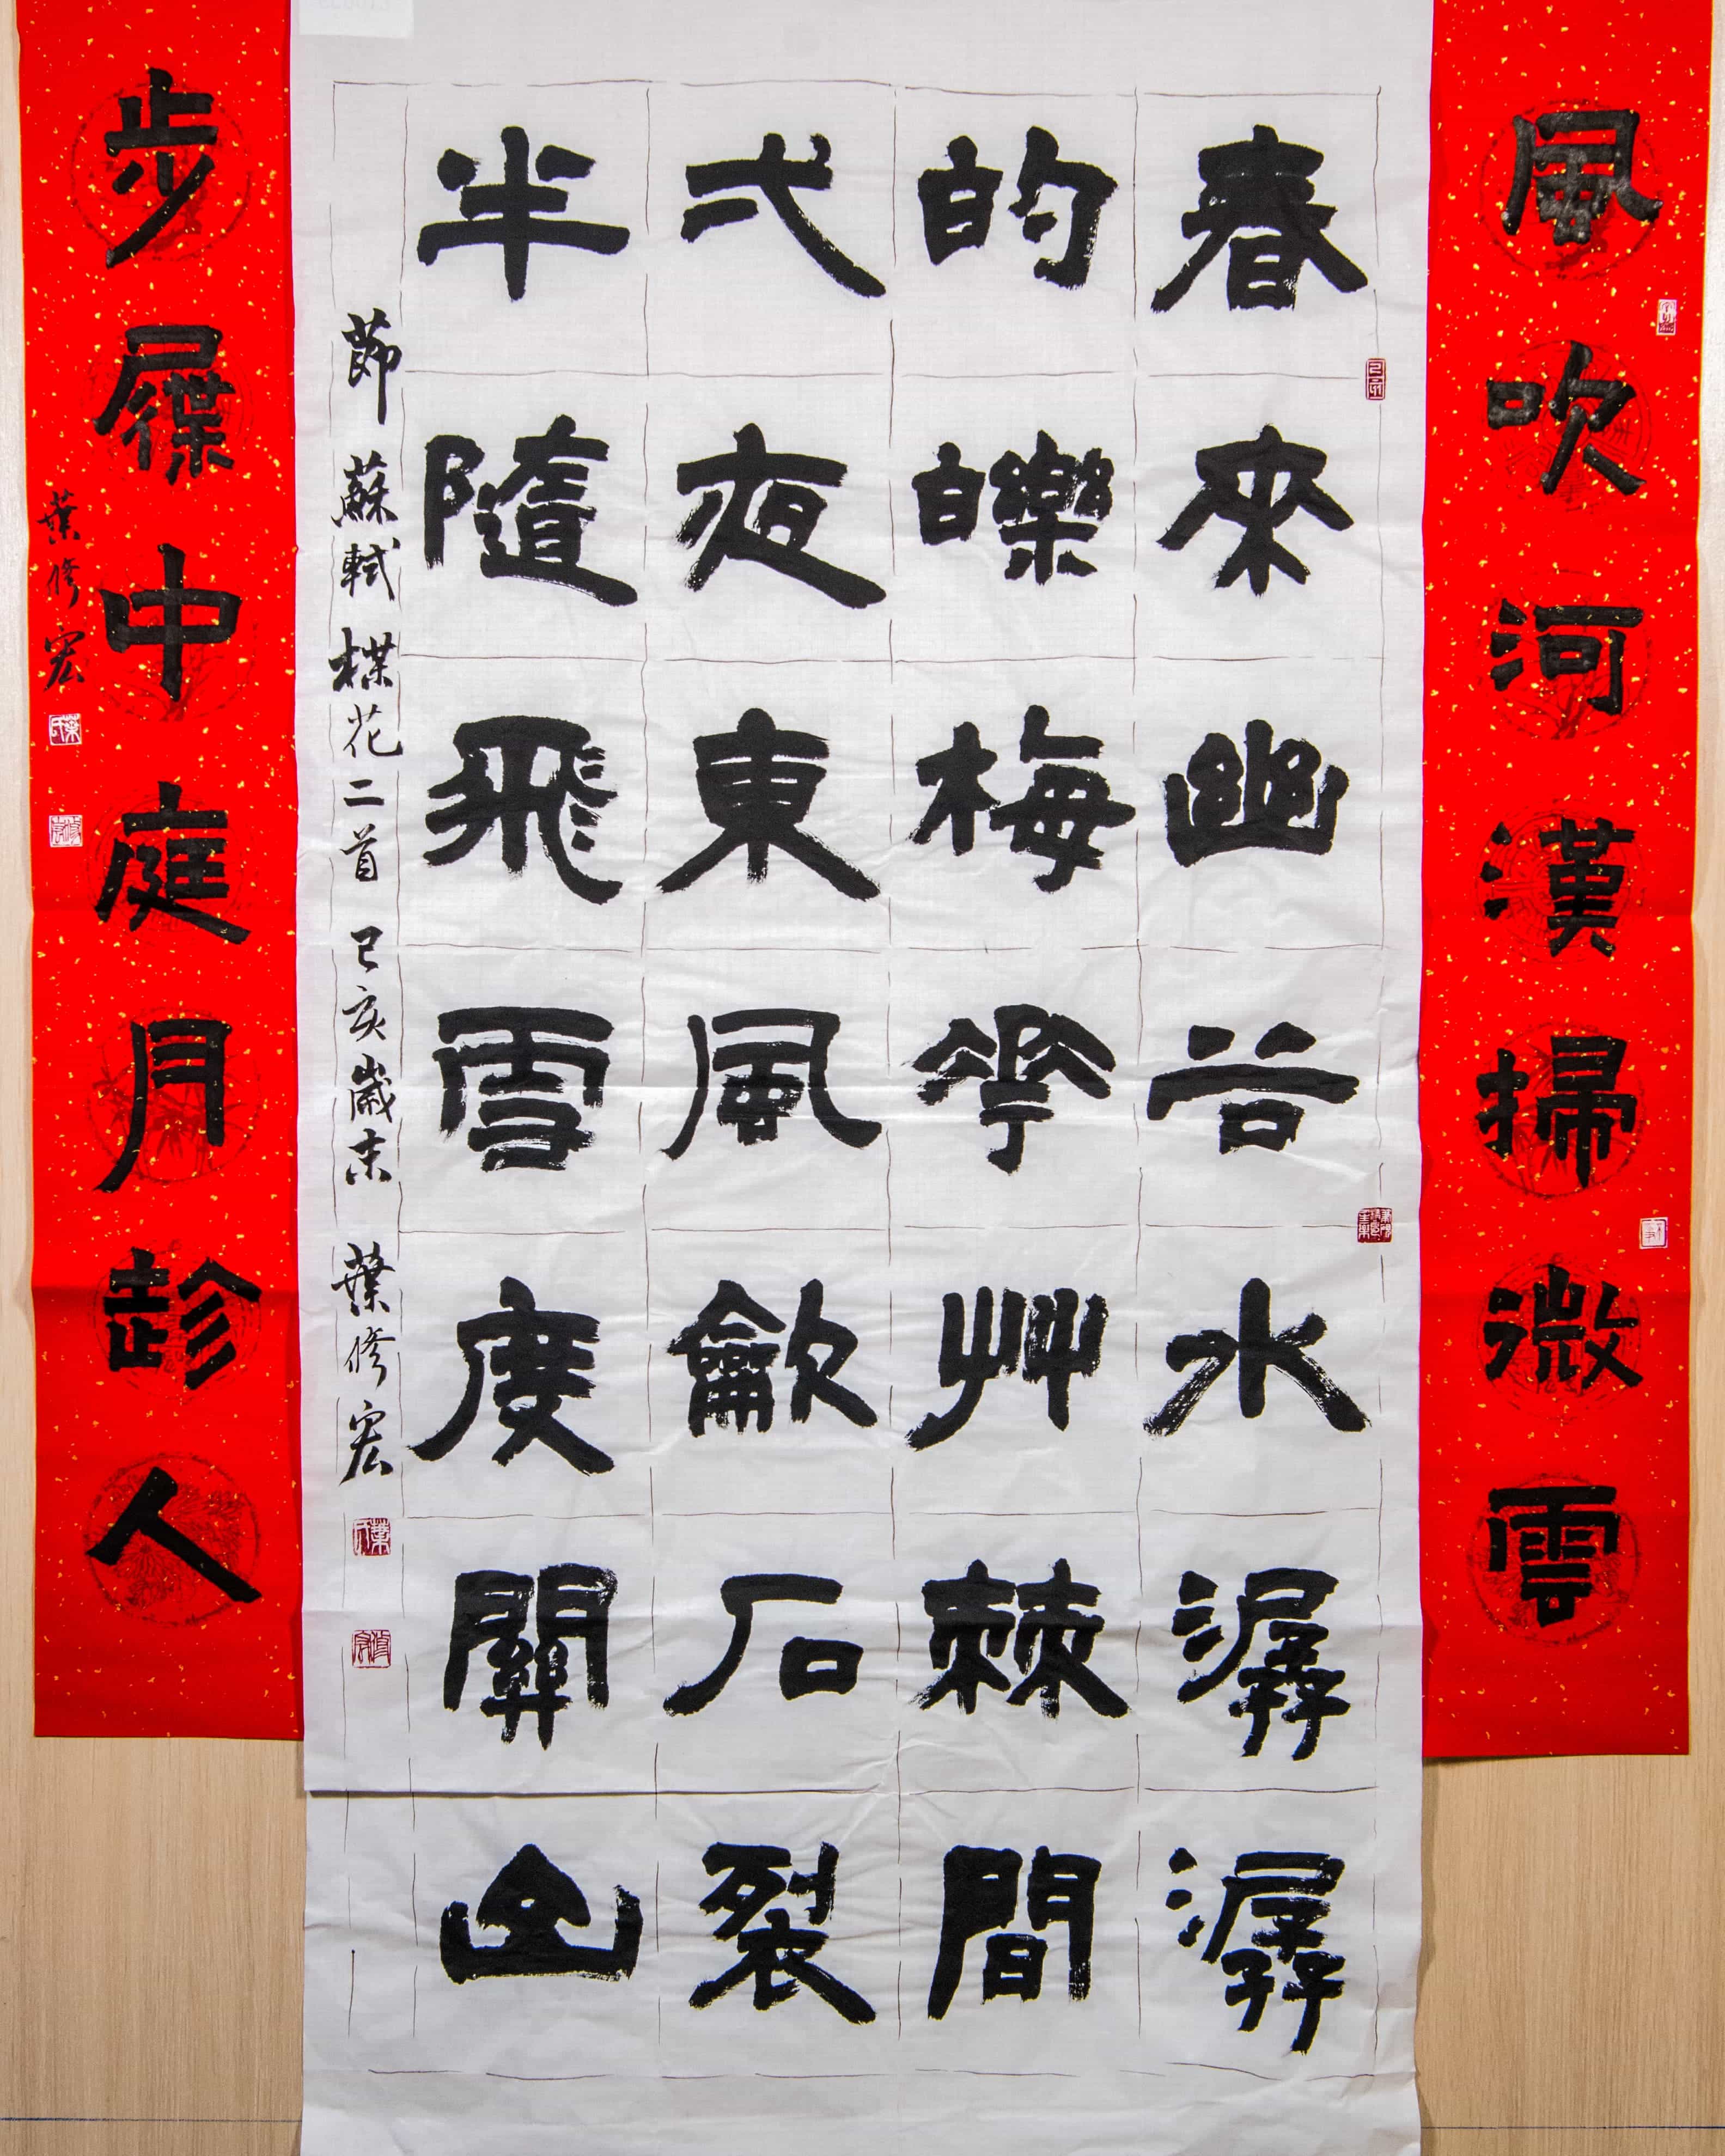 風吹河漢掃微雲
春來幽谷水潺潺
的皪梅花艸棘間
弌夜東風龡石裂
半隨飛雪度關山
節蘇軾楳花二首 己亥歲末 葉修宏
步屧中庭月趂人
葉修宏